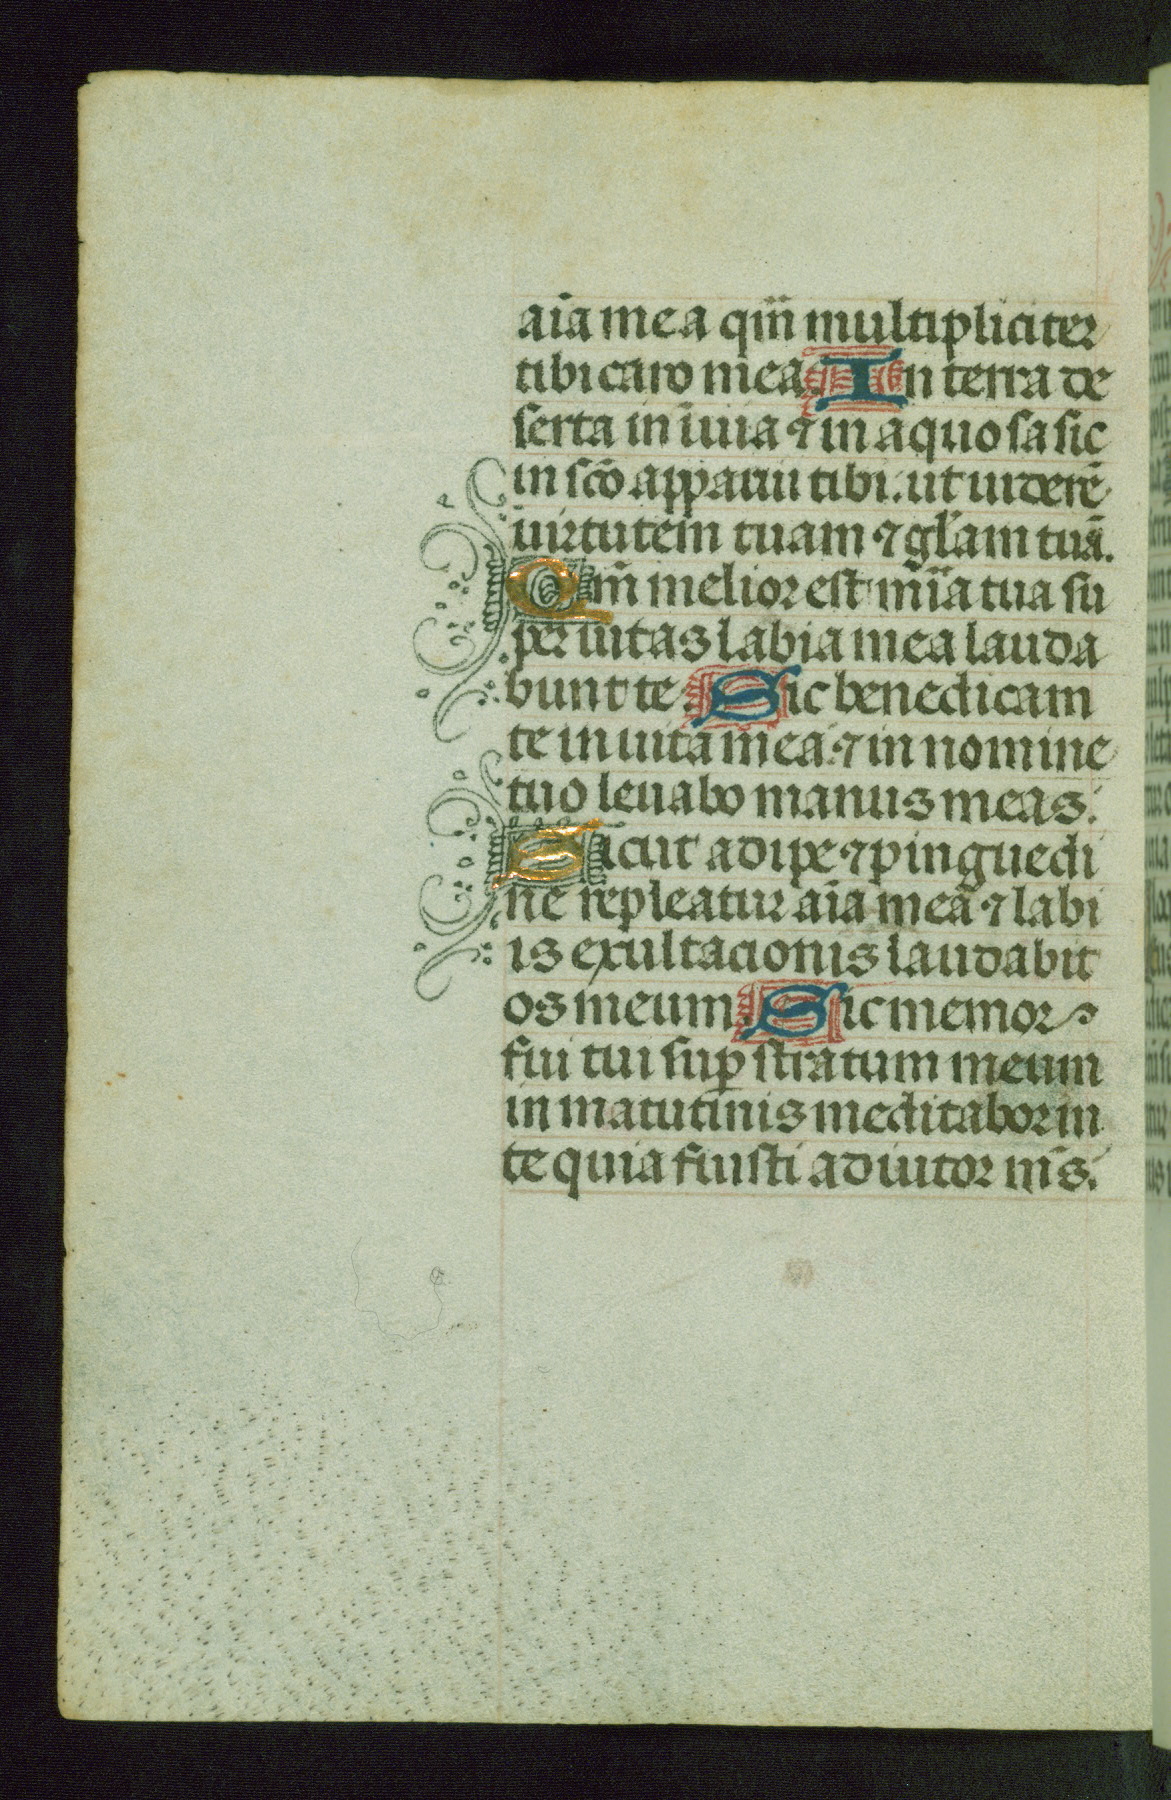 aīa mea qm̄ multipliciter
tibi caro mea. In terra de
serta in inuia ⁊ in aquosa sic
in sc̄o apparui tibi. ut uiderē
uirtutem tuam ⁊ gl̄am tuā.
Qm̄ melior est mīa tua su
per uitas labia mea lauda
bunt te. Sic benedicam
te in uita mea. ⁊ in nomine
tuo leuabo manus meas.
Sicut adipe ⁊ pinguedi
ne repleatur aīa mea ⁊ labi
is exultacionis laudabit
os meum. Sic memor
fui tui sup̄ stratum meum
in matutinis meditabor in
te quia fuisti adiutor ms̄.